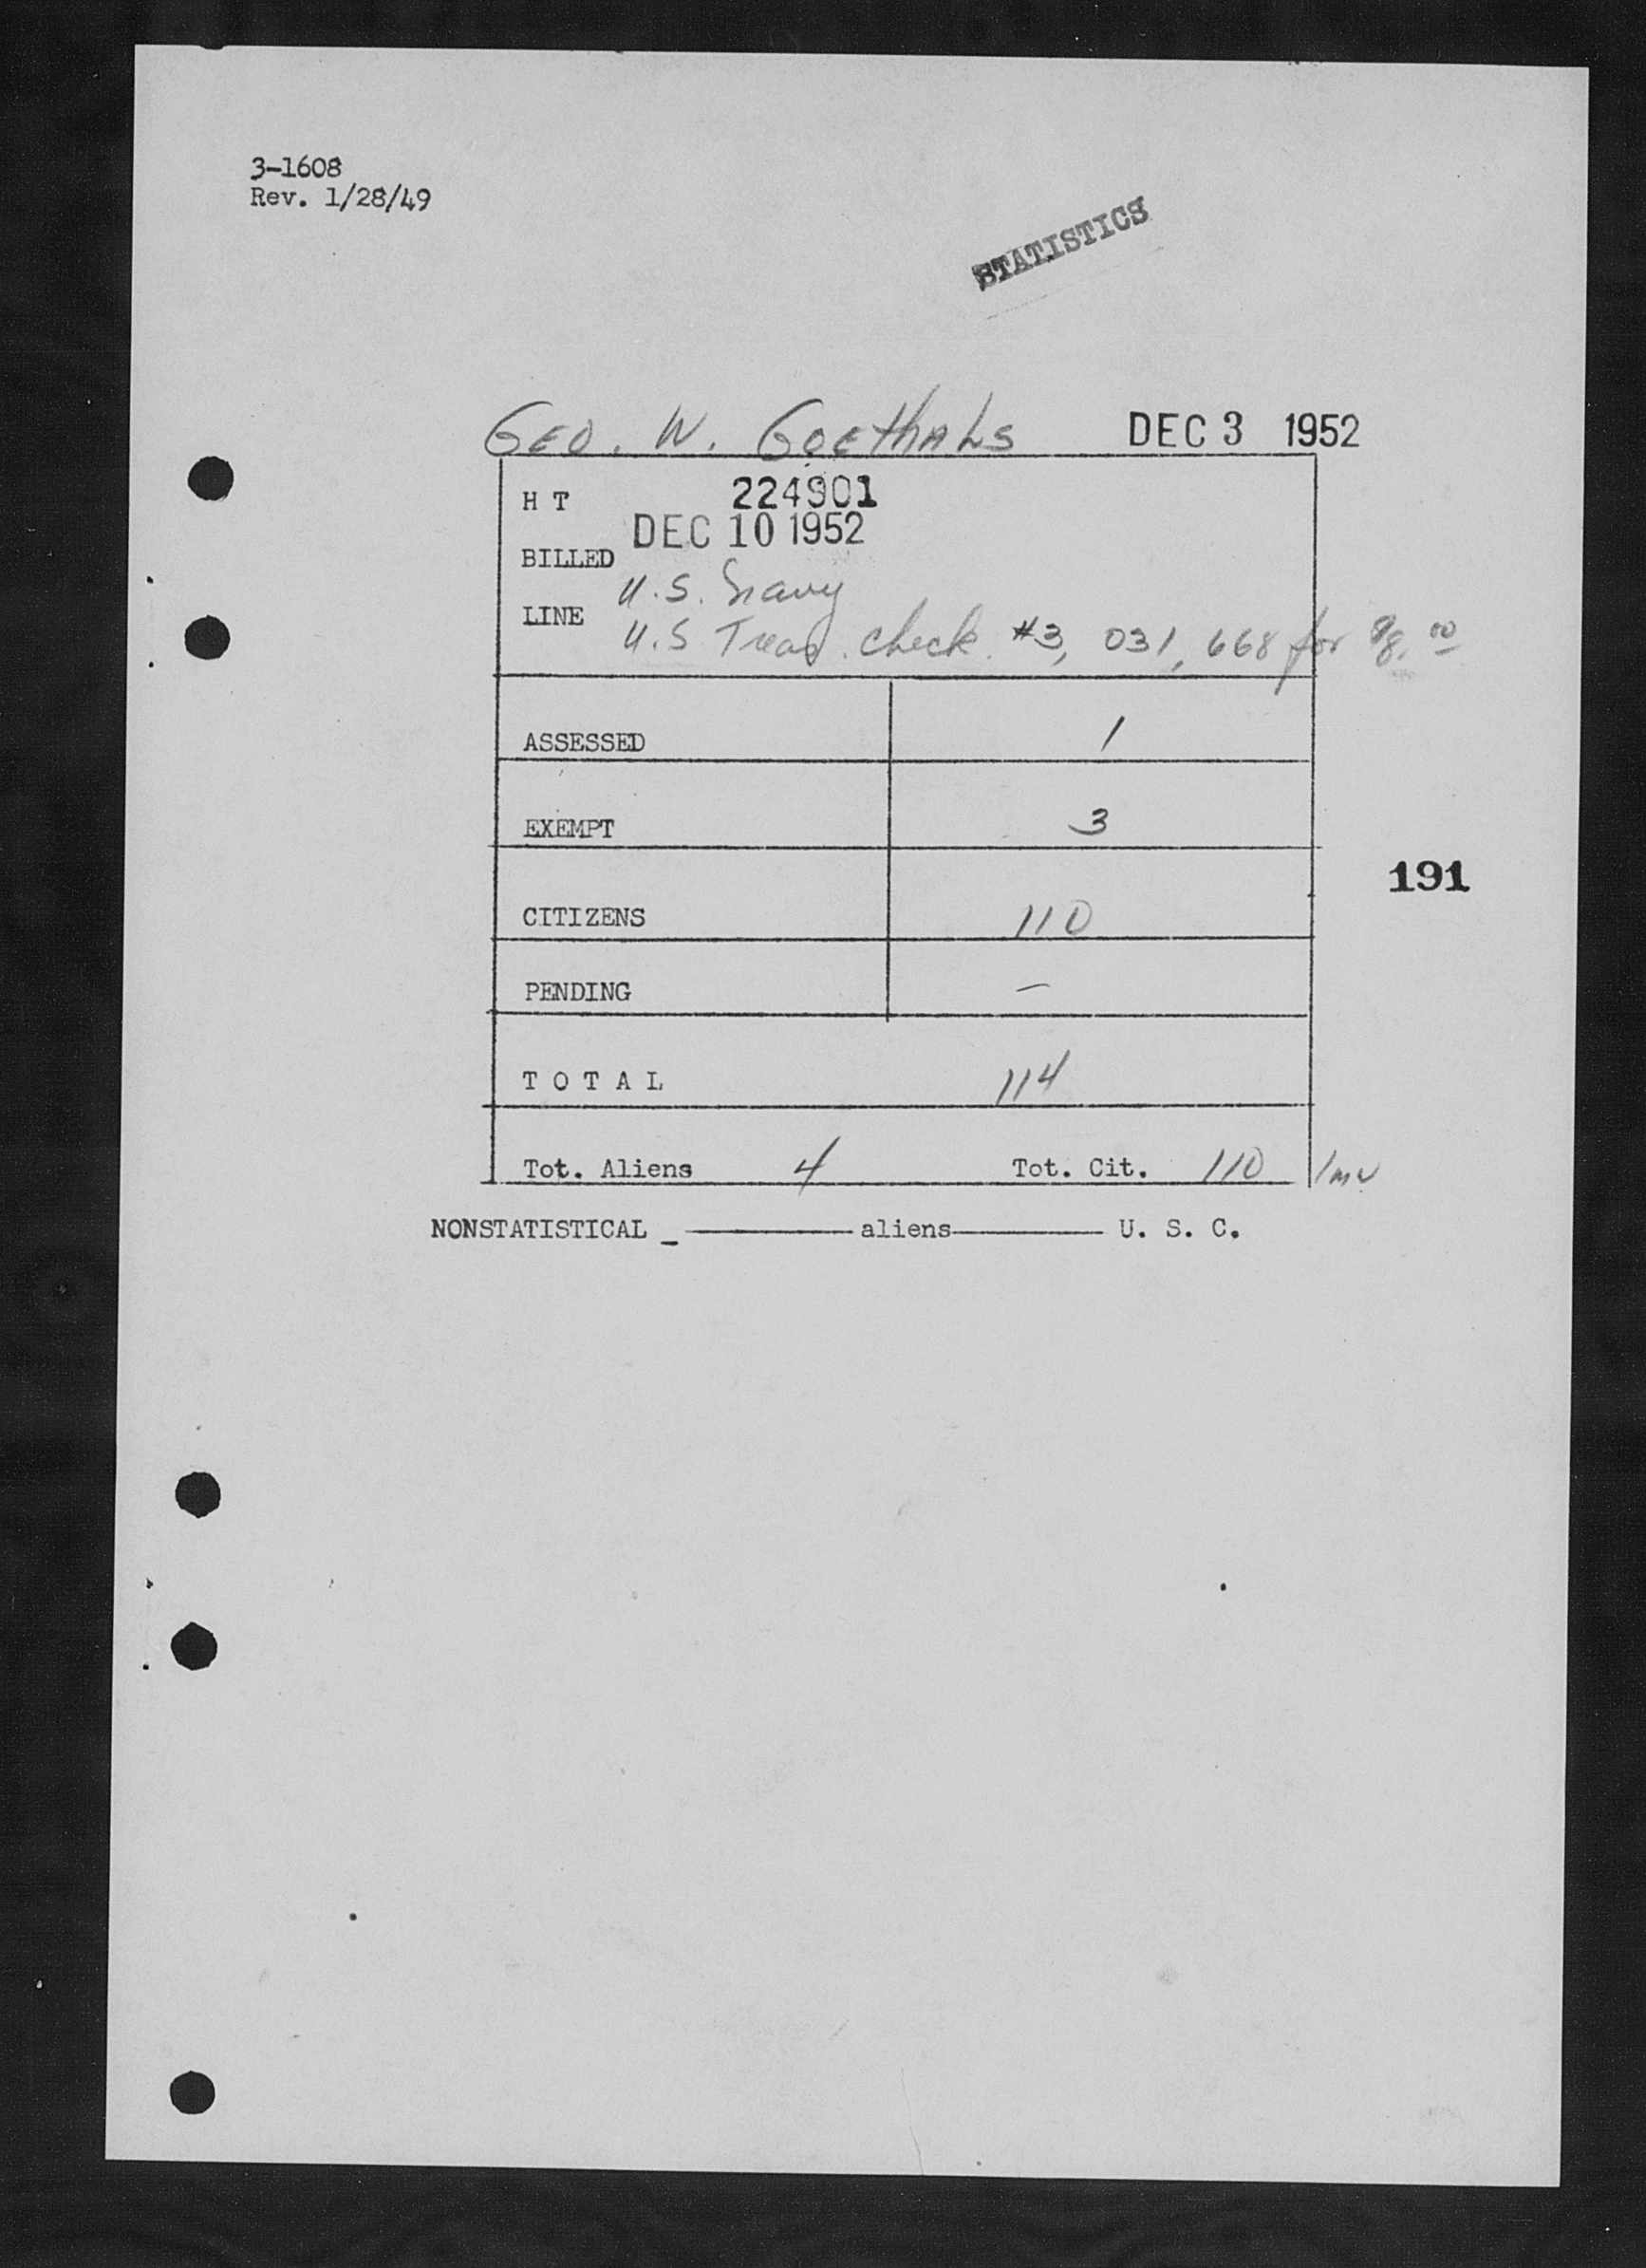 3-1608
Rev. 1/28/49
STATISTICS
GEO. W. GOEthALS DEC 3 1952
H T 224901
DEC 10 1952
BILLED
U.S. Navy
LINE
U.S Treas. check #3, 031, 668 for $8.00
ASSESSED 1
EXEMPT 3
191
CITIZENS 110
PENDING –
T O T A L 114
Tot. Aliens 4 Tot. Cit. 110
NONSTATISTICAL _ ———— aliens ———— U. S. C.